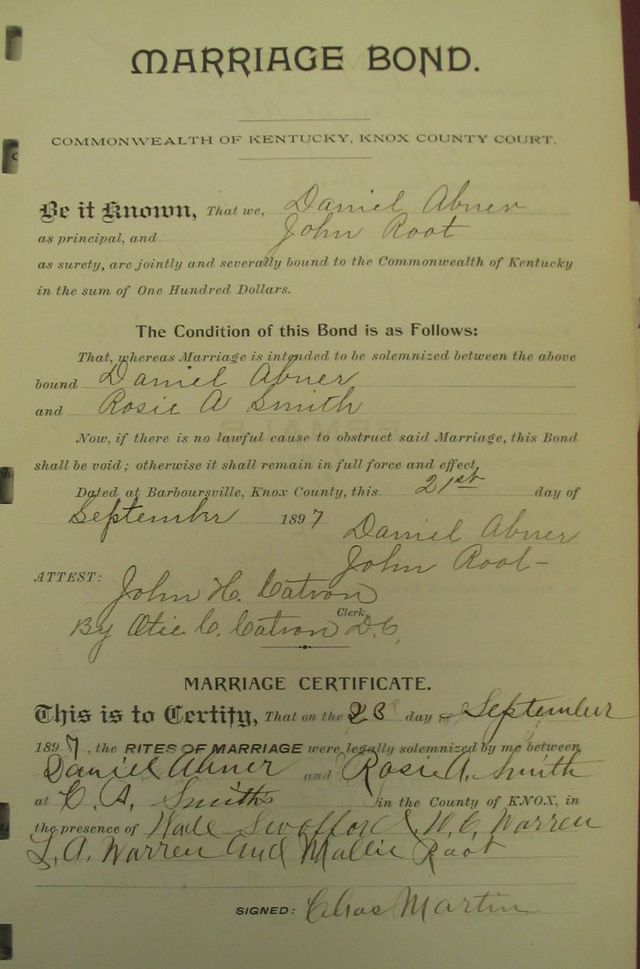 MARRIAGE BOND.
COMMONWEALTH OF KENTUCKY, KNOX COUNTY COURT.
Be it Known, That we, Daniel Abner
as principal, and John Root
as surety, are jointly and severally bound to the Commonwealth of Kentucky
in the sum of One Hundred Dollars.
The Condition of this Bond is as Follows:
That, whereas Marriage is intended to be solemnized between the above
bound Daniel Abner
and Rosie A Smith
Now, if there is no lawful cause to obstruct said Marriage, this Bond
shall be void; otherwise it shall remain in full force and effect.
Dated at Barboursville, Knox County, this 21st day of
September 1897
Daniel Abner
John Root
ATTEST: John H. Catron
Clerk
By Otie C. Catron D.C.
MARRIAGE CERTIFICATE.
This is to Certify, That on the 23 day of September
1897, the RITES OF MARRIAGE were legally solemnized by me between
Daniel Abner and Rosie A. Smith
at C. A. Smiths in the County of KNOX, in
the presence of Wade Swafford, W. C. Warren
L. A. Warren and Mallie Root
SIGNED: Chas Martin